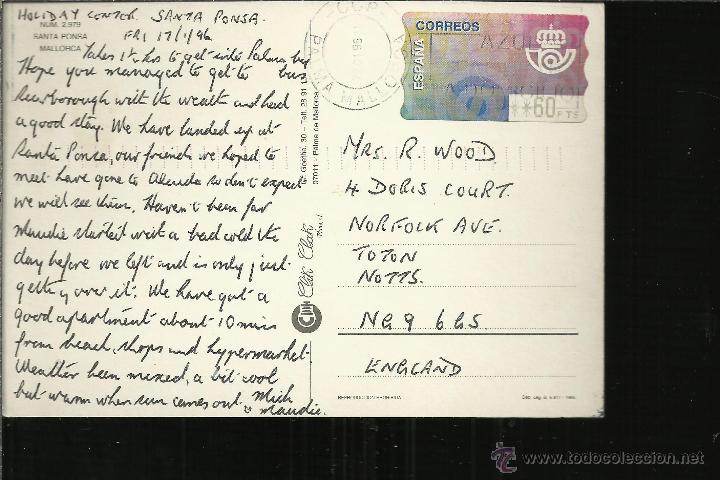 HOLIDAY CENTER. SANTA PONSA.
NUM. 2.979
SANTA PONSA
MALLORCA
FRI 17/1/96
Takes 1½ hrs to get into Palma by bus
Hope you managed to get to
Scarborough with the weather and had
a good stay. We have landed up at
Santa Ponsa, our friends we hoped to
meet have gone to so don't expect
we will see them. Haven't been far
Maudie started with a bad cold the
day before we left and is only just
getting over it. We have got a
good apartment about 10 mins
from beach, shops and hypermarket.
Weather been mixed, a bit cool
but warm when sun comes out. Mich
& Maudie.
30 - Telf. 28 91
07011 - Palma de Mallorca
Clik Clak
PALMA MALLORCA
CORREOS
ESPAÑA
**60 PTS
MRS. R. WOOD
4 DORIS COURT.
NORFOLK AVE.
TOTON
NOTTS.
NG9 6GS
ENGLAND
todocoleccion
www.todocoleccion.net